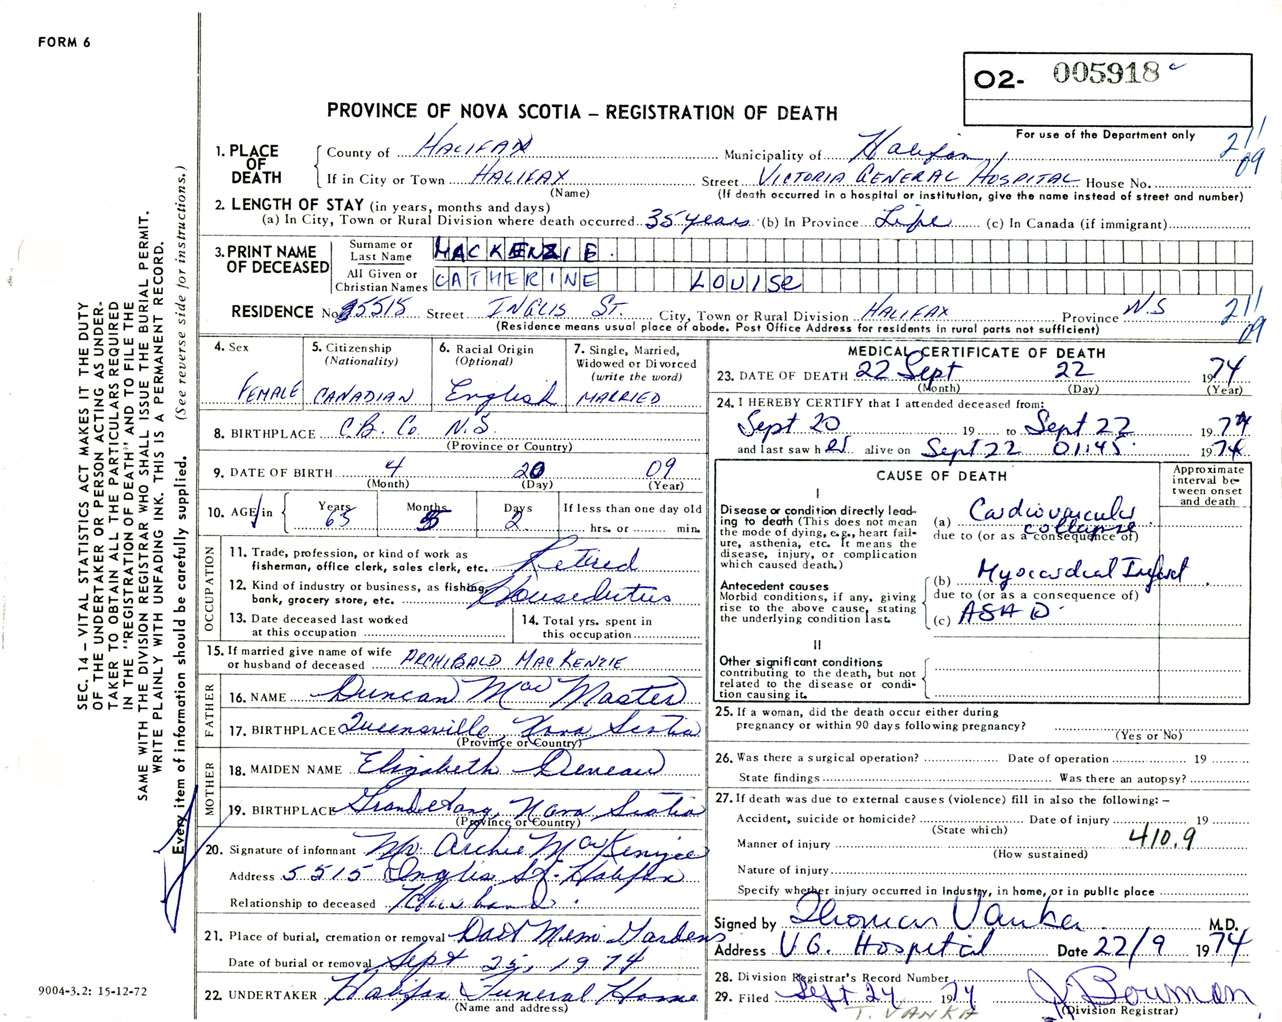 FORM 6
O2- 005918
PROVINCE OF NOVA SCOTIA – REGISTRATION OF DEATH
For use of the Department only
211
09
1. PLACE OF DEATH
County of HALIFAX Municipality of Halifax
If in City or Town HALIFAX Street VICTORIA GENERAL HOSPITAL House No.
(Name) (If death occurred in a hospital or institution, give the name instead of street and number)
2. LENGTH OF STAY (in years, months and days)
(a) In City, Town or Rural Division where death occurred 35 years (b) In Province Life (c) In Canada (if immigrant)
3. PRINT NAME OF DECEASED
Surname or Last Name MACKENZIE
All Given or Christian Names CATHERINE LOUISE
RESIDENCE No. 5515 Street INGLIS ST. City, Town or Rural Division HALIFAX Province N.S
(Residence means usual place of abode. Post Office Address for residents in rural parts not sufficient)
211
09
4. Sex FEMALE
5. Citizenship (Nationality) CANADIAN
6. Racial Origin (Optional) English
7. Single, Married, Widowed or Divorced (write the word) MARRIED
8. BIRTHPLACE C.B. Co N.S.
(Province or Country)
9. DATE OF BIRTH 4 20 09
(Month) (Day) (Year)
10. AGE in Years 65 Months 5 Days 2 If less than one day old hrs. or min.
OCCUPATION
11. Trade, profession, or kind of work as fisherman, office clerk, sales clerk, etc. Retired
12. Kind of industry or business, as fishing, bank, grocery store, etc. Houseduties
13. Date deceased last worked at this occupation
14. Total yrs. spent in this occupation
15. If married give name of wife or husband of deceased ARCHIBALD MACKENZIE
FATHER
16. NAME Duncan Mac Master
17. BIRTHPLACE Queensville Nova Scotia
(Province or Country)
MOTHER
18. MAIDEN NAME Elizabeth Deneau
19. BIRTHPLACE Grand Etang, Nova Scotia
(Province or Country)
20. Signature of informant Mr. Archie MacKenzie
Address 5515 Inglis St. Halifax
Relationship to deceased Husband.
21. Place of burial, cremation or removal Dart Mem. Gardens
Date of burial or removal Sept 25, 1974
22. UNDERTAKER Halifax Funeral Home
(Name and address)
MEDICAL CERTIFICATE OF DEATH
23. DATE OF DEATH 22 Sept 22 1974
(Month) (Day) (Year)
24. I HEREBY CERTIFY that I attended deceased from:
Sept 20 19 to Sept 22 1974
and last saw h er alive on Sept 22 01:45 1974
CAUSE OF DEATH
Approximate interval between onset and death
I
Disease or condition directly leading to death (This does not mean the mode of dying, e.g., heart failure, asthenia, etc. It means the disease, injury, or complication which caused death.)
(a) Cardiovascular collapse
due to (or as a consequence of)
Antecedent causes
Morbid conditions, if any, giving rise to the above cause, stating the underlying condition last.
(b) Myocardial Infarct
due to (or as a consequence of)
(c) ASHD
II
Other significant conditions contributing to the death, but not related to the disease or condition causing it.
25. If a woman, did the death occur either during pregnancy or within 90 days following pregnancy?
(Yes or No)
26. Was there a surgical operation? Date of operation 19
State findings Was there an autopsy?
27. If death was due to external causes (violence) fill in also the following: –
Accident, suicide or homicide? Date of injury 19
(State which) 410.9
Manner of injury
(How sustained)
Nature of injury
Specify whether injury occurred in Industry, in home, or in public place
Signed by Thomas Vanka M.D.
Address V.G. Hospital Date 22/9 1974
28. Division Registrar's Record Number
29. Filed Sept 24 1974 J Bowman
T. VANKA (Division Registrar)
SEC. 14 – VITAL STATISTICS ACT MAKES IT THE DUTY
OF THE UNDERTAKER OR PERSON ACTING AS UNDER-
TAKER TO OBTAIN ALL THE PARTICULARS REQUIRED
IN THE "REGISTRATION OF DEATH" AND TO FILE THE
SAME WITH THE DIVISION REGISTRAR WHO SHALL ISSUE THE BURIAL PERMIT.
WRITE PLAINLY WITH UNFADING INK. THIS IS A PERMANENT RECORD.
Every item of information should be carefully supplied. (See reverse side for instructions.)
9004-3.2: 15-12-72